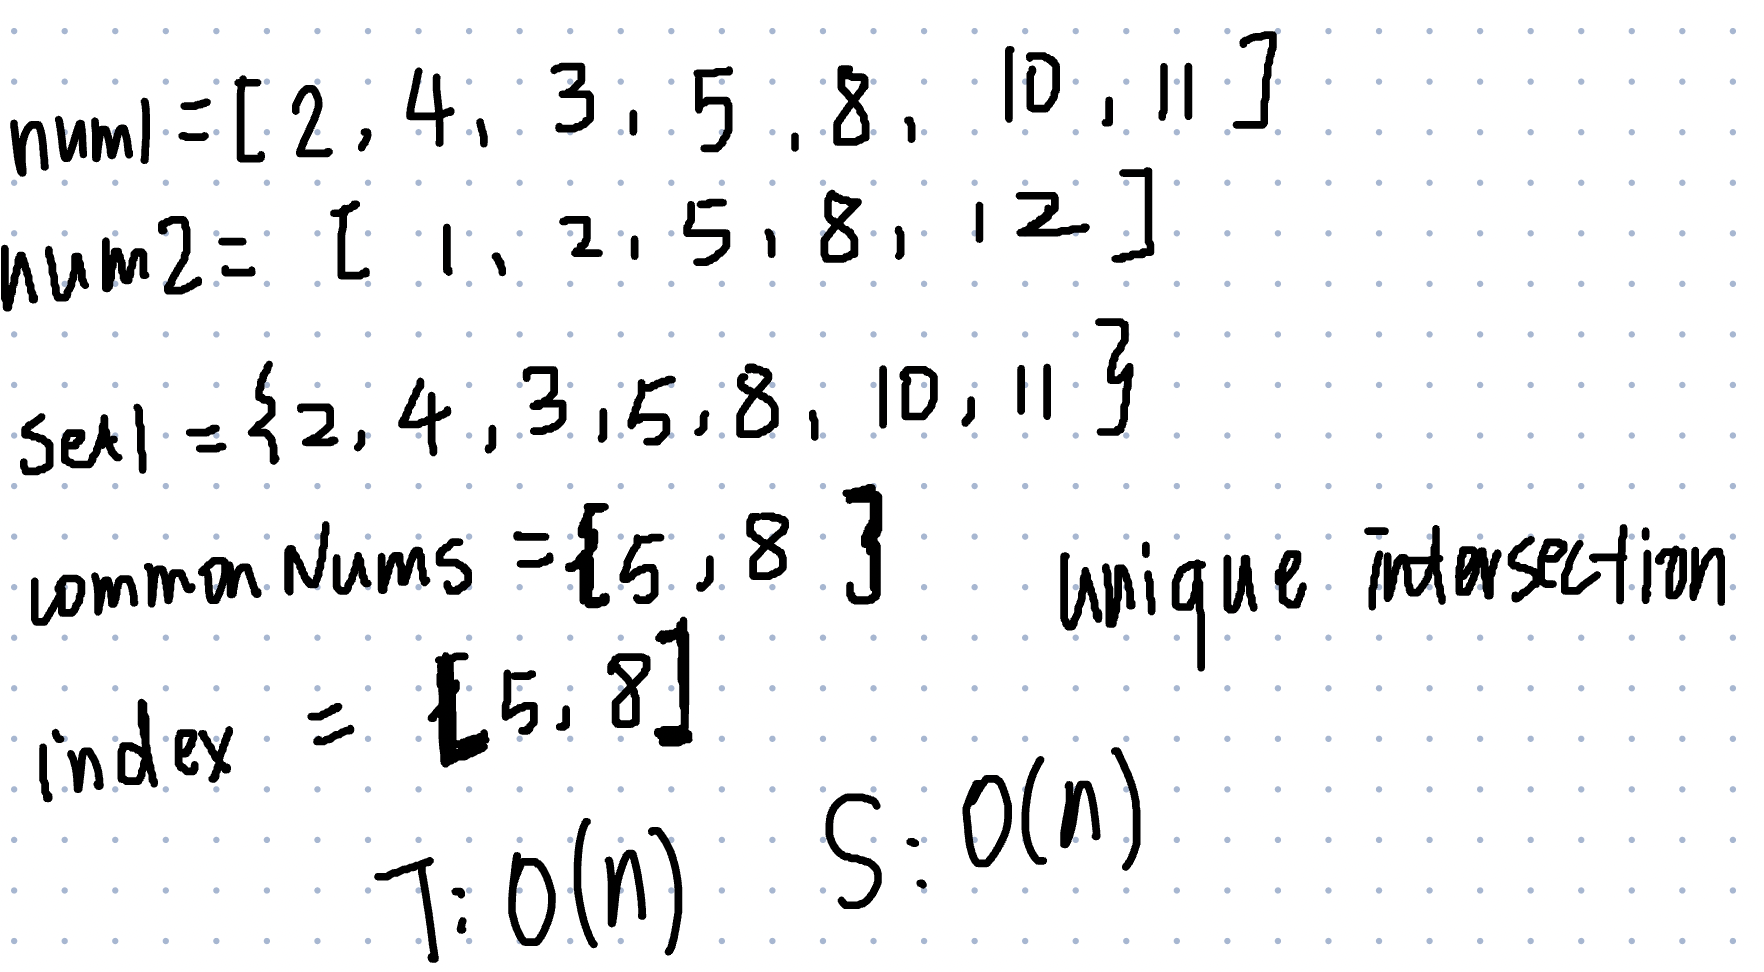 num1 = [ 2, 4, 3, 5, 8, 10, 11 ]
num2 = [ 1, 2, 5, 8, 12 ]
set1 = { 2, 4, 3, 5, 8, 10, 11 }
common Nums = { 5, 8 } unique intersection
index = [ 5, 8 ]
T: O(n) S: O(n)